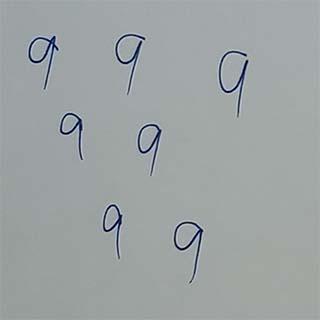 9 9 9
9 9
9 9